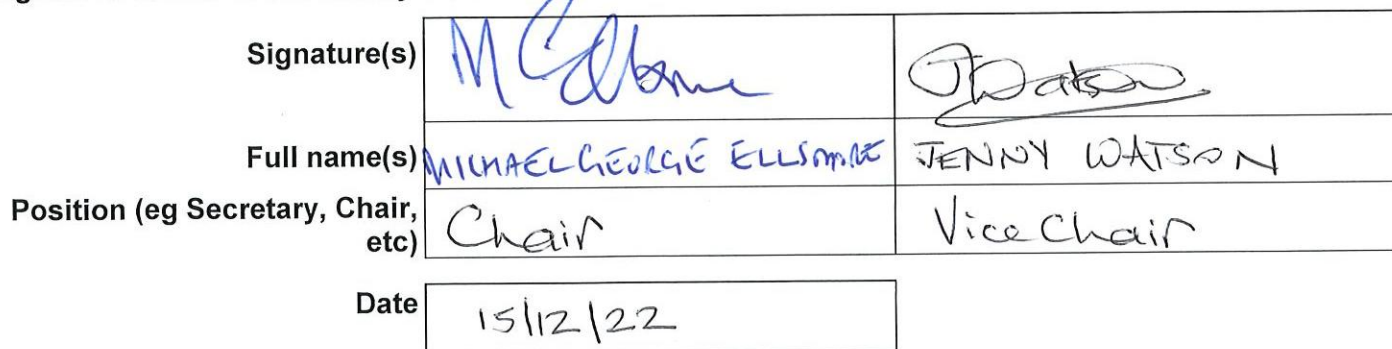 Signature(s)
Full name(s) MICHAEL GEORGE ELLSMORE JENNY WATSON
Position (eg Secretary, Chair,
etc) Chair Vice Chair
Date 15/12/22